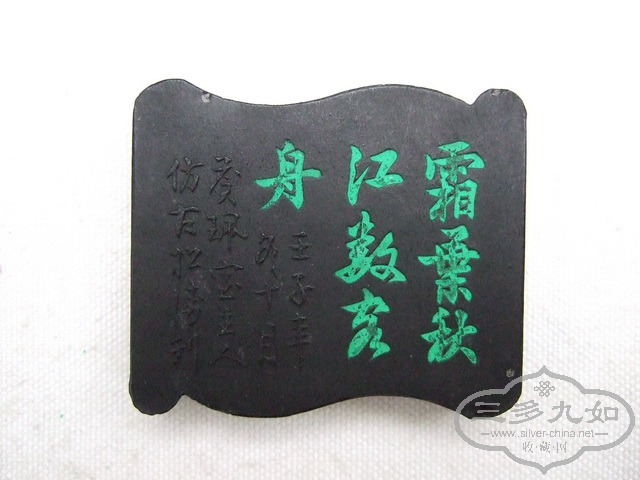 霜葉秋
江數客
舟
壬子年
十月
珮室主人
仿古
三多九如
—www.silver-china.net—
收·藏·网